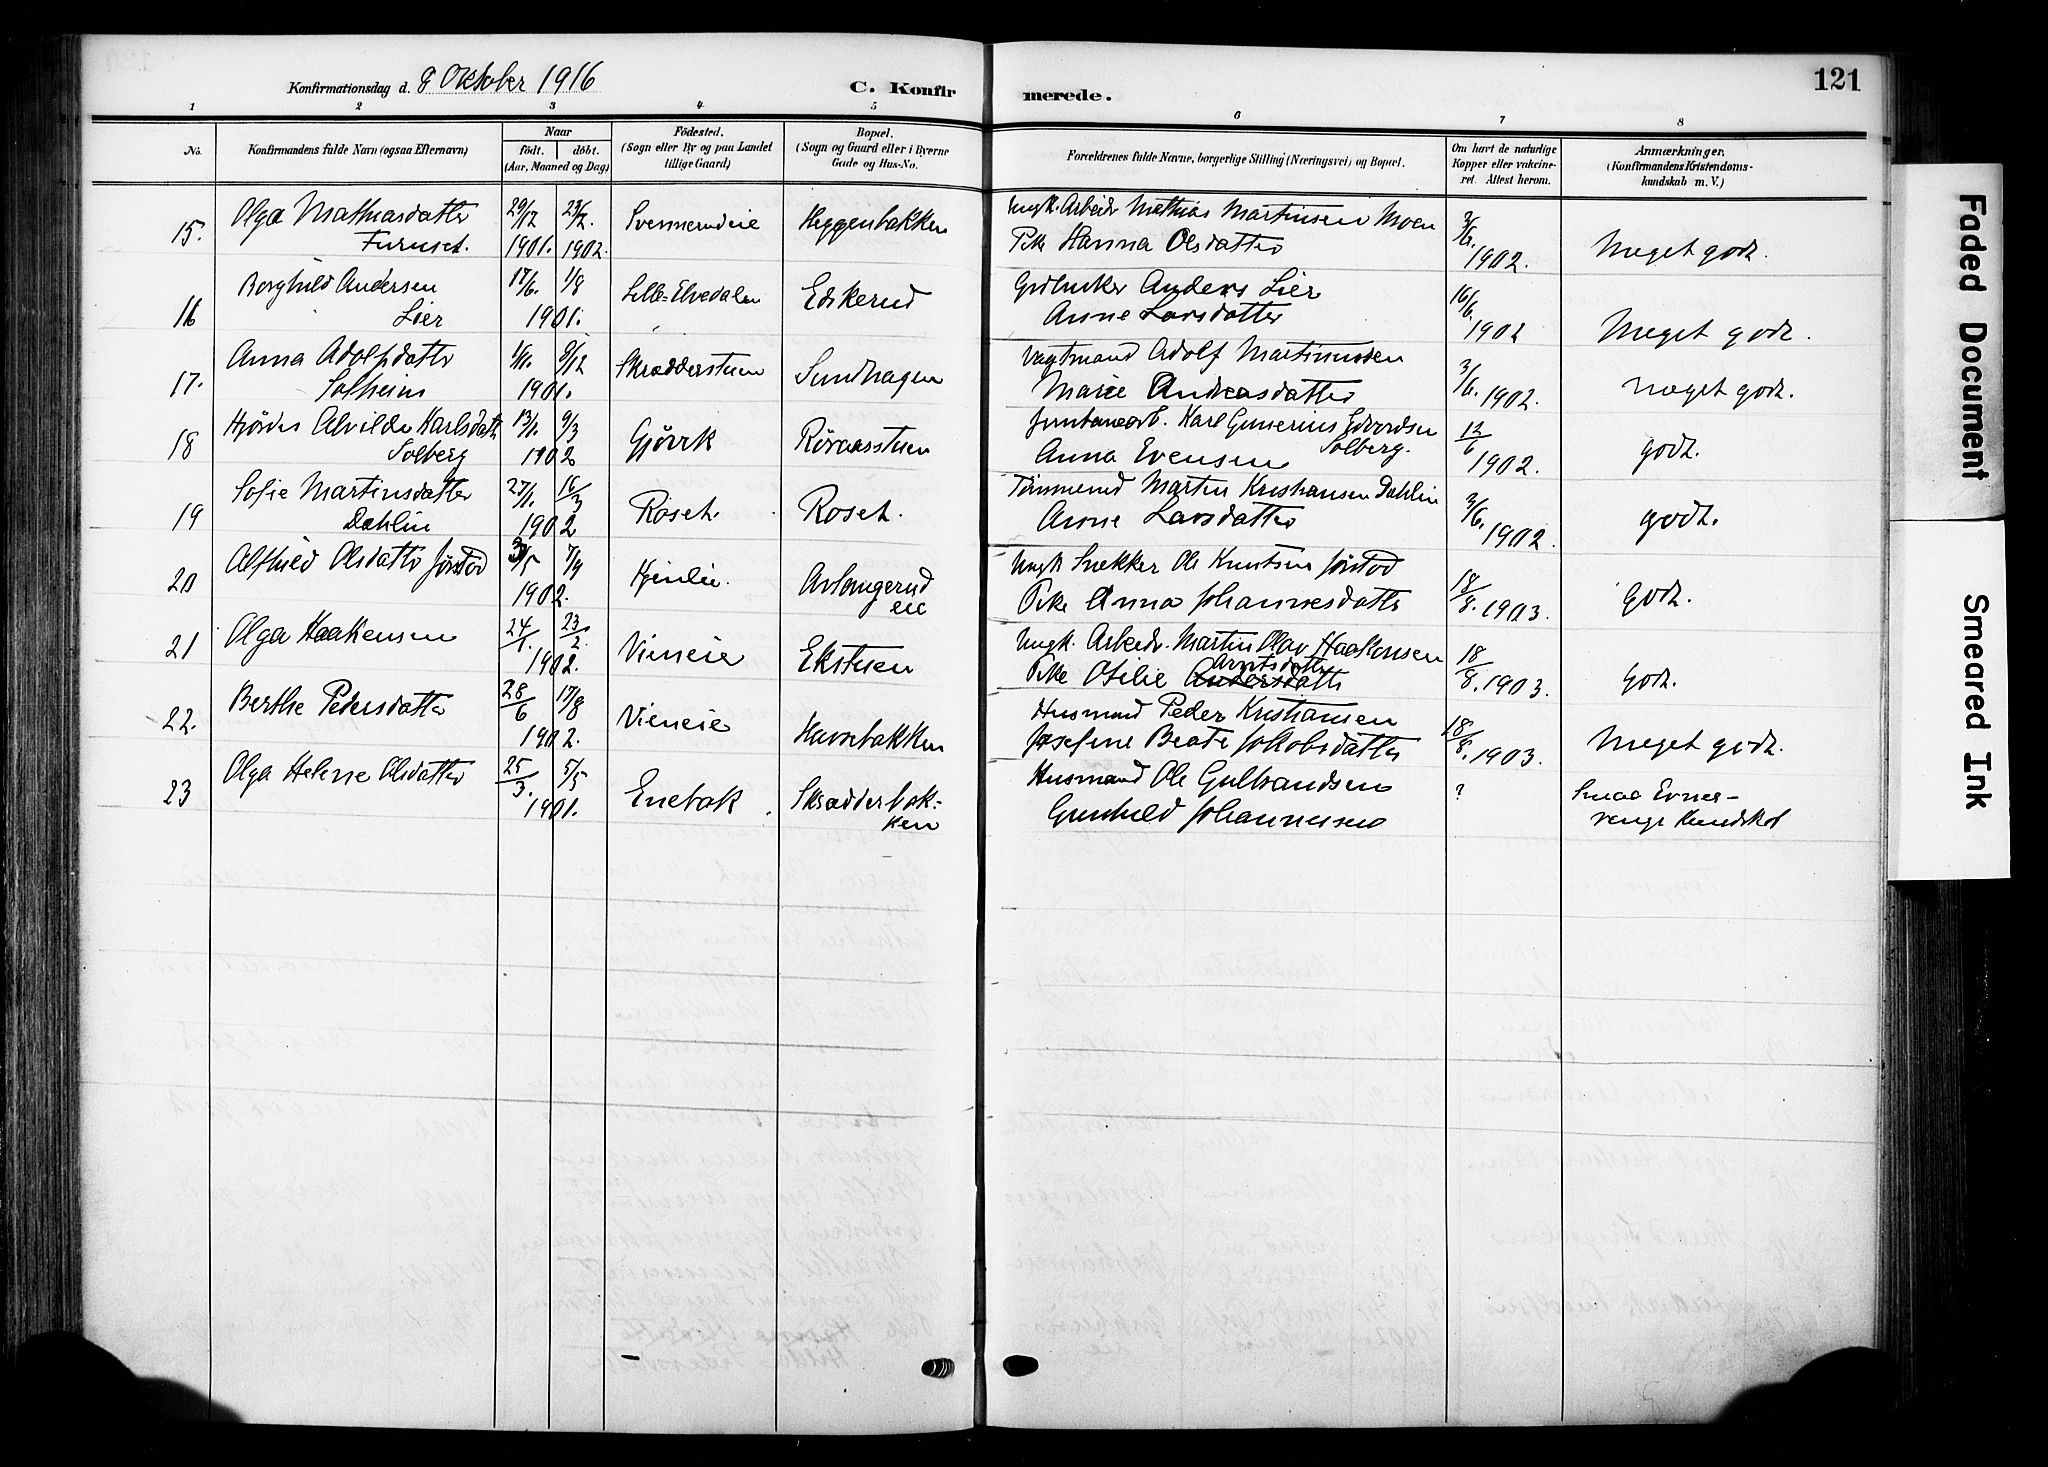 Konfirmationsdag d. 8 Oktober 1916
C. Konfirmerede.
121
1 2 3 4 5 6 7 8
No.
Konfirmandens fulde Navn (ogsaa Efternavn)
Naar
født. døbt.
(Aar, Maaned og Dag)
Fødested.
(Sogn eller By og paa Landet
tillige Gaard)
Bopæl.
(Sogn og Gaard eller i Byerne
Gade og Hus-No.
Forældrenes fulde Navne, borgerlige Stilling (Næringsvei) og Bopæl.
Om havt de naturlige
Kopper eller vakcine-
ret. Attest herom.
Anmærkninger.
(Konfirmandens Kristendoms-
kundskab m. V.)
15. Olga Mathiasdatter 29/12 23/2. Svennerudeie Heggenbakken Ungk. Arbeidr Mathias Martinsen Moen 3/6.
Furuset. 1901. 1902. Pike Hanna Olsdatter 1902. Meget godt.
16 Borghild Andersen 17/6. 1/8 Lille-Elvedalen Edskerud Gdbruker Anders Lier 16/6.
Lier 1901. Anne Larsdatter 1902 Meget godt.
17. Anna Adolfsdatter 8/12 Skrædderstuen Sundhagen Vagtmand Adolf Martinussen 3/6.
Solheim 1901. Marie Andreasdatter 1902. meget godt.
18 Hjørdis Alvilde Karlsdatter 13/1. 9/3 Gjøvik Røraasstuen Karl Gunerius Edvardsen 12/6
Solberg 1902 Anna Evensen Solberg. 1902. godt.
19 Sofie Martinsdatter 27/1. 16/3 Roset. Roset. Tømmermd Martin Kristiansen Dahlin 3/6.
Dahlin 1902 Anne Larsdatter 1902. godt.
20 Alfhild Olsdatter Jørstad 3/5 7/9 Aslangerud Ungk Snekker Ole Knutsen Jørstad 18/8. 1903.
1902. eie Pike Anna Johannesdatter godt.
21 Olga Haakensen 24/1. 23/2. Vieneie Ekstuen Ungk. Arbeidr. Martin Olav Haakonsen 18/8. 1903.
1902. Pike Otilie Andersdatter Arntsdatter godt.
22. Berthe Pedersdatter 28/6 17/8 Vieneie Havrebakken Husmand Peder Kristiansen 18/8. 1903.
1902. Josefine Beate Jakobsdatter Meget godt.
23 Olga Helene Olsdatter 25/3. 5/5 Enebak. Skrædderbak- Husmand Ole Gulbrandsen ? Smaa Evner-
1901. ken Gunhild Johannesen ringe Kundskab
Faded Document
Smeared Ink